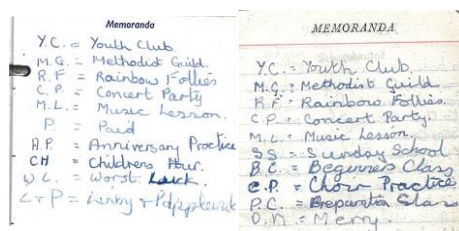 Memoranda
Y.C. = Youth Club.
M.G. = Methodist Guild.
R.F = Rainbow Follies
C.P. = Concert Party
M.L. = Music Lesson.
P = Paid
A.P. = Anniversary Practice
CH = Childrens Hour.
W.L. = Worst Luck.
L & P = Linby & Papplewick
MEMORANDA
Y.C. = Youth Club.
M.G. = Methodist Guild.
R.F. = Rainbow Follies.
C.P. = Concert Party.
M.L. = Music Lesson.
S.S. = Sunday School
B.C. = Beginners Class
C.P. = Choir Practice
P.C. = Preparation Class
= Merry